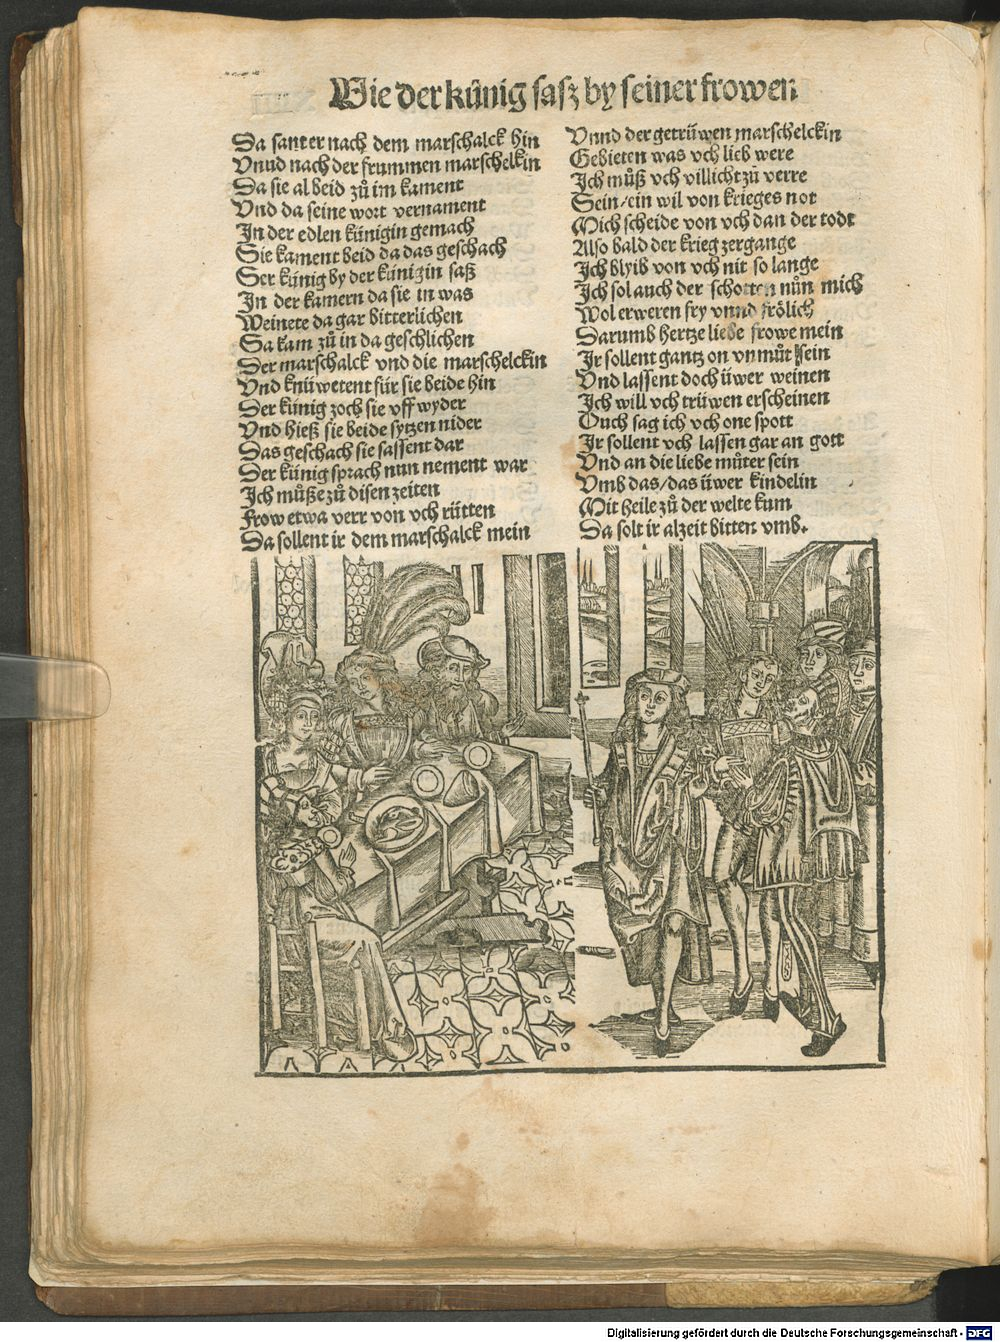 Wie der künig sasz by seiner frowen
Da santer nach dem marschalck hin
Vnud nach der frummen marschelkin
Da sie al beid zů im kament
Vnd da seine wort vernament
In der edlen künigin gemach
Sie kament beid da das geschach
Der künig by der künigin saß
In der kamern da sie in was
Weinete da gar bitterlichen
Da kam zů in da geschlichen
Der marschalck vnd die marschelckin
Vnd knüwetent für sie beide hin
Der künig zoch sie vff wyder
Vnd hieß sie beide sytzen nider
Das geschach sie sassent dar
Der künig sprach nun nement war
Ich můße zů disen zeiten
Frow etwa verr von vch rütten
Da sollent ir dem marschalck mein
Vnnd der getrüwen marschelckin
Gebieten was vch lieb were
Ich můß vch villicht zů verre
Sein/ein wil von krieges not
Mich scheide von vch dan der todt
Also bald der krieg zergange
Ich blyib von vch nit so lange
Ich sol auch der schotten nůn mich
Wol erweren fry vnnd frölich
Darumb hertze liebe frowe mein
Ir sollent gantz on vnmůt sein
Vnd lassent doch üwer weinen
Ich will vch trüwen erscheinen
Ouch sag ich vch one spott
Ir sollent vch lassen gar an gott
Vnd an die liebe můter sein
Vmb das/das üwer kindelin
Mit heile zů der welte kum
Da solt ir alzeit bitten vmb.
Digitalisierung gefördert durch die Deutsche Forschungsgemeinschaft - DFG